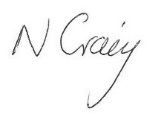 N Craig